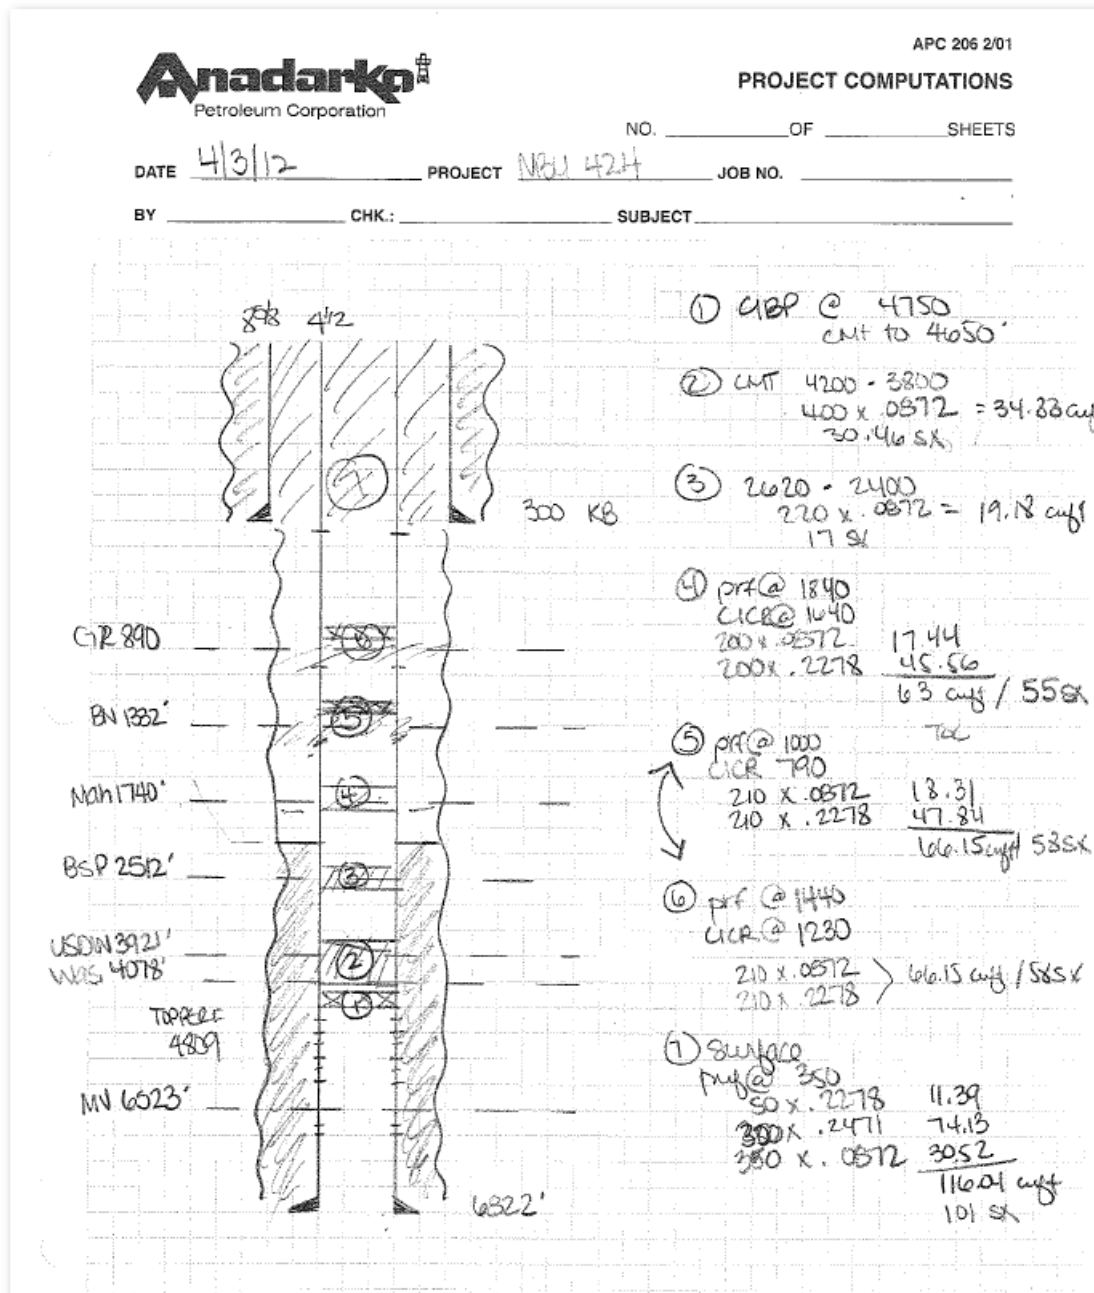 Anadarko
Petroleum Corporation
APC 206 2/01
PROJECT COMPUTATIONS
NO. OF SHEETS
DATE 4/3/12 PROJECT NBU 42H JOB NO.
BY CHK.: SUBJECT
8 5/8 4 1/2
7
300 KB
GR 890
6
BN 1332'
5
Mah 1740'
4
BSP 2512'
3
USDW 3921'
Was 4078'
2
1
TOPPERF
4809
MV 6523'
6822'
① CIBP @ 4750
CMT to 4650'
② CMT 4200 - 3800
400 x .0872 = 34.88 cuf
30.46 SX
③ 2620 - 2400
220 x .0872 = 19.18 cuft
17 SX
④ prf @ 1840
CICR @ 1640
200 x .0872 17.44
200 x .2278 45.56
63 cuft / 55 SX
⑤ prf @ 1000 TOC
CICR 790
210 x .0872 18.31
210 x .2278 47.84
66.15 cuft / 58 SX
⑥ prf @ 1440
CICR @ 1230
210 x .0872 66.15 cuft / 58 SX
210 x .2278
⑦ Surface
prf @ 350
50 x .2278 11.39
300 x .2471 74.13
350 x .0872 30.52
116.04 cuft
101 SX